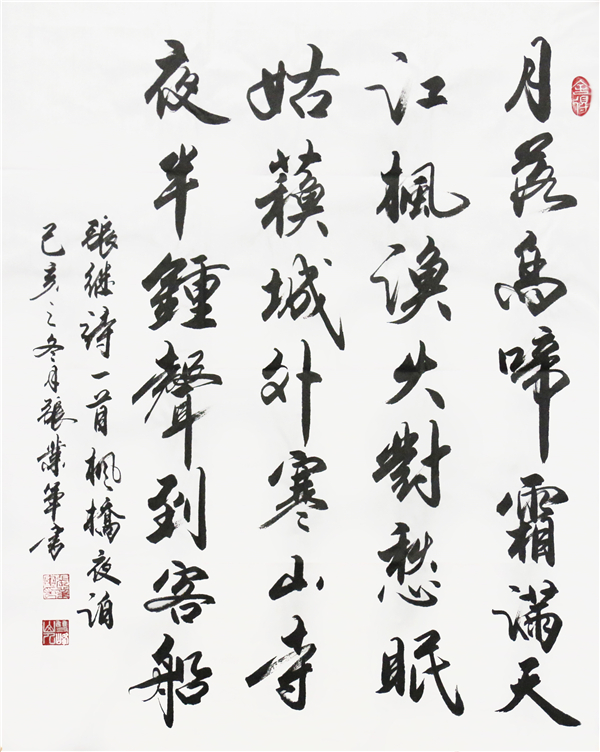 月落烏啼霜滿天
江楓漁火對愁眠
姑蘇城外寒山寺
夜半鍾聲到客船
張继詩一首楓橋夜泊
己亥之冬月張業軍书